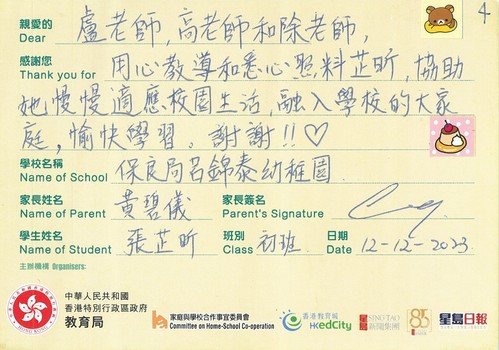 親愛的 盧老師, 高老師和除老師,
Dear
感謝您 用心教導和悉心照料芷昕, 協助
Thank you for
她慢慢適應校園生活, 融入學校的大家
庭, 愉快學習。謝謝!!♡
4
學校名稱 保良局呂錦泰幼稚園
Name of School
家長姓名 黃碧儀 家長簽名
Name of Parent Parent's Signature
學生姓名 張芷昕 班別 初班 日期 12-12-2023
Name of Student Class Date
主辦機構 Organisers:
中華人民共和國
香港特別行政區政府
教育局
家庭與學校合作事宜委員會
Committee on Home-School Co-operation
香港教育城
HKedCity
SING TAO
星島新聞集團
85
星島日報